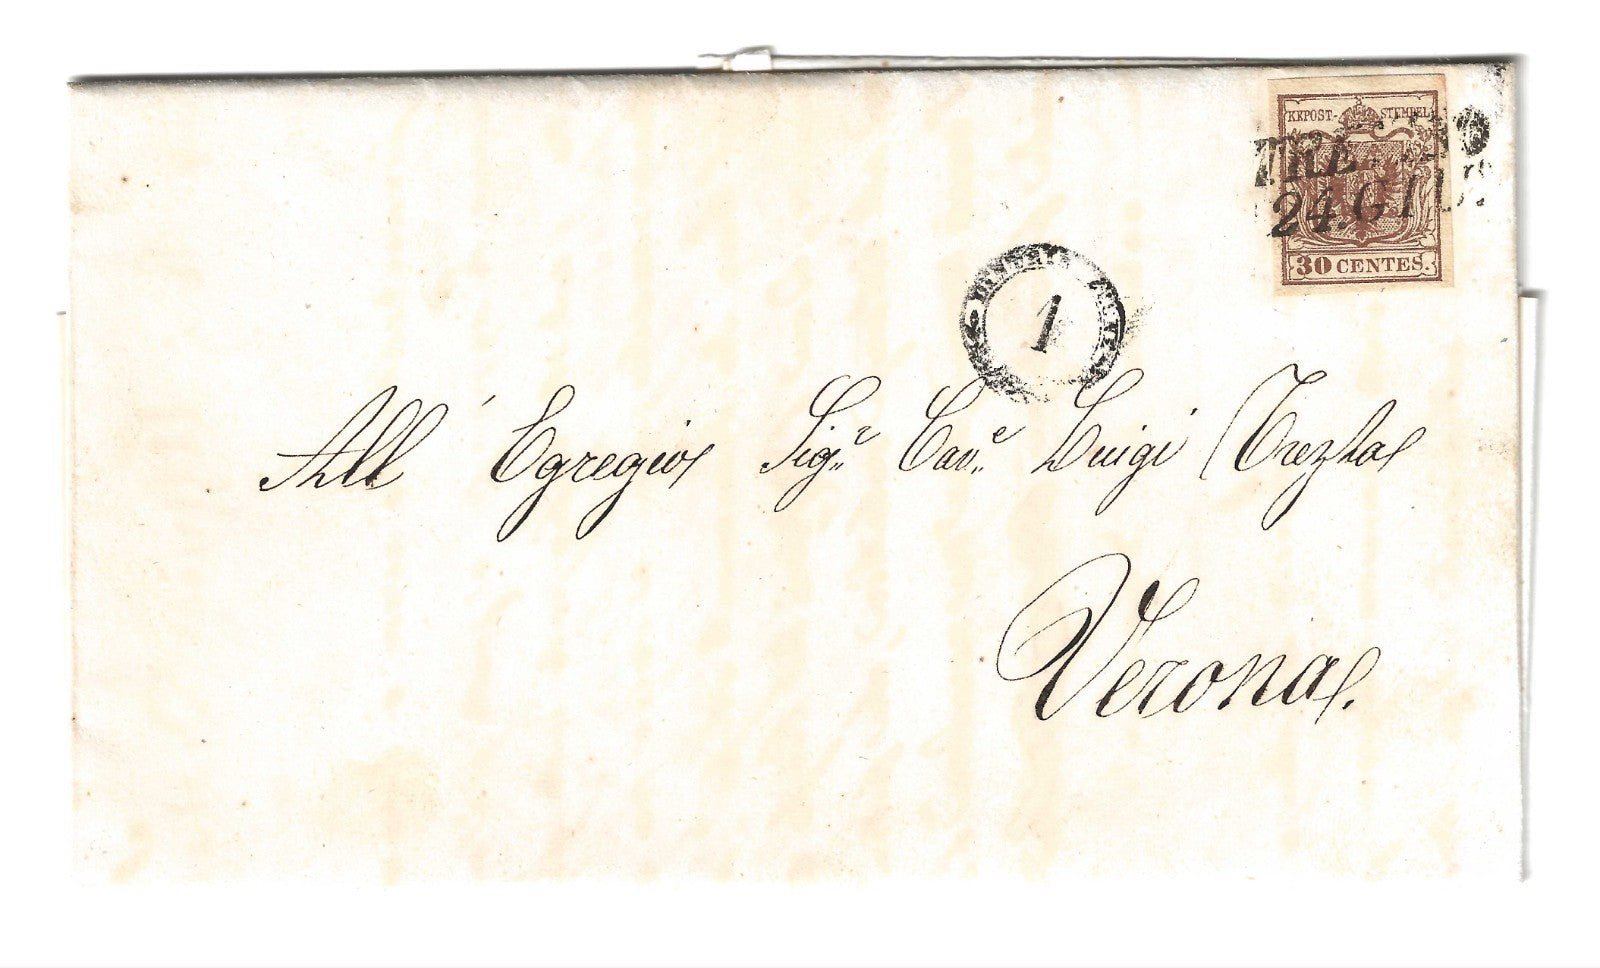 KKPOST-STEMPEL
TRE
24. GIU.
30 CENTES.
1
All' Egregio Sig.r Cav.e Luigi Trezza
Verona.